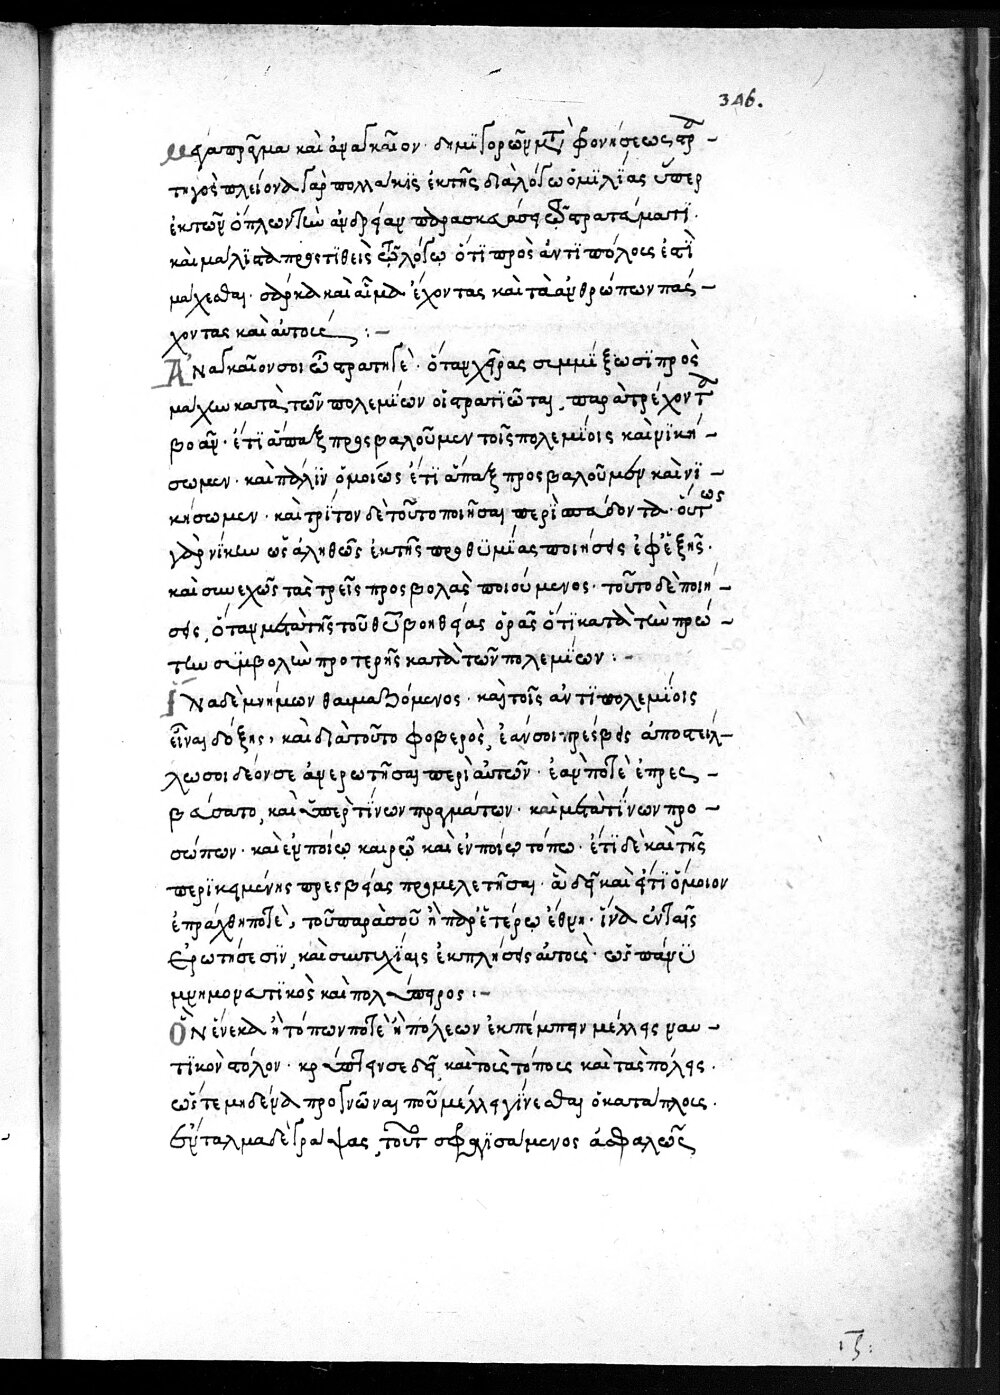 346.
μέγα πρᾶγμα καὶ ἀναγκαῖον· δημιγορῶν μετὰ φρονήσεως στρα-
τηγὸς πλείονα γὰρ πολλακὶς ἐκ τῆς διὰ λόγων ὁμιλίας ὑπερ
ἐκ τῶν ὅπλων τὴν ἀνδρείαν παρασκευάσει τῷ στρατεύματι.
καὶ μάλιστα προστιθεὶς τῷ λόγω ὅτι πρὸς ἀντιπάλους ἐστὶ
μάχεσθαι· σάρκα καὶ αἷμα ἔχοντας καὶ τὰ ἀνθρώπων πάς-
χοντας καὶ αὐτούς :-
Ἀναγκαῖον σοι ὦ στρατηγὲ· ὅταν χεῖρας συμμίξωσι πρὸς
μάχην κατὰ τῶν πολεμίων οἱ στρατιῶται, παρατρέχοντα
βοᾶν· ἔτι ἅπαξ προσβαλοῦμεν τοῖς πολεμίοις καὶ νική-
σωμεν· καὶ πάλιν ὁμοίως ἔτι ἅπαξ προσβαλοῦμεν καὶ νι-
κήσωμεν· καὶ τρίτον δὲ τοῦτο ποιῆσαι περισπεύδοντα· οὕτως
γὰρ νίκην ὡς ἀληθῶς ἐκ τῆς προθυμίας ποιήσεις ἐφεξῆς·
καὶ συνεχῶς τὰς τρεῖς προσβολὰς ποιούμενος· τοῦτο δὲ ποιή-
σεις, ὅταν μετὰ τῆς τοῦ θεοῦ βοηθείας ὁρᾶς ὅτι κατὰ τὴν πρώ-
την συμβολὴν προτερῆς κατὰ τῶν πολεμίων :-
Ἵνα δὲ μνήμων θαυμαζόμενος· καὶ τοῖς ἀντιπολεμίοις
εἶναι δόξης, καὶ διὰ τοῦτο φοβερὸς, ἐάν σοι πρέσβεις ἀποστείλ-
λωσοι δέον σε ἀνερωτῆσαι περὶ αὐτῶν· ἐάν ποτε ἐπρες-
βεύσατο, καὶ ὑπὲρ τίνων πραγμάτων· καὶ μετὰ τίνων προ-
σώπων· καὶ ἐν ποίῳ καιρῷ καὶ ἐν ποίῳ τόπω· ἔτι δὲ καὶ τῆς
περικειμένης πρεσβείας προμελετῆσαι· ἃ δεῖ καὶ εἴ τι ὅμοιον
ἐπράχθη ποτὲ, τοῦ παρὰ σοῦ ἢ παρ' ἑτέρῳ ἔθνη· ἵνα ἐν ταῖς
ἐρωτήσεσιν, καὶ συντυχίαις ἐκπλήσεις αὐτοὺς· ὡς πάνυ
μνημονευτικὸς καὶ πολύπειρος :-
Ὧν ἕνεκα ἢ τόπων ποτὲ ἢ πόλεων ἐκπέμπειν μέλλεις ναυ-
τικὸν στόλον· κρύπτειν σε δεῖ καὶ τοὺς τόπους καὶ τὰς πόλεις.
ὥστε μηδένα προγνῶναι ποῦ μέλλει γίνεσθαι ὁ κατάπλους.
ἔνταλμα δὲ γράψας, τοῦτο σφραγισάμενος ἀσφαλῶς
ιζ: